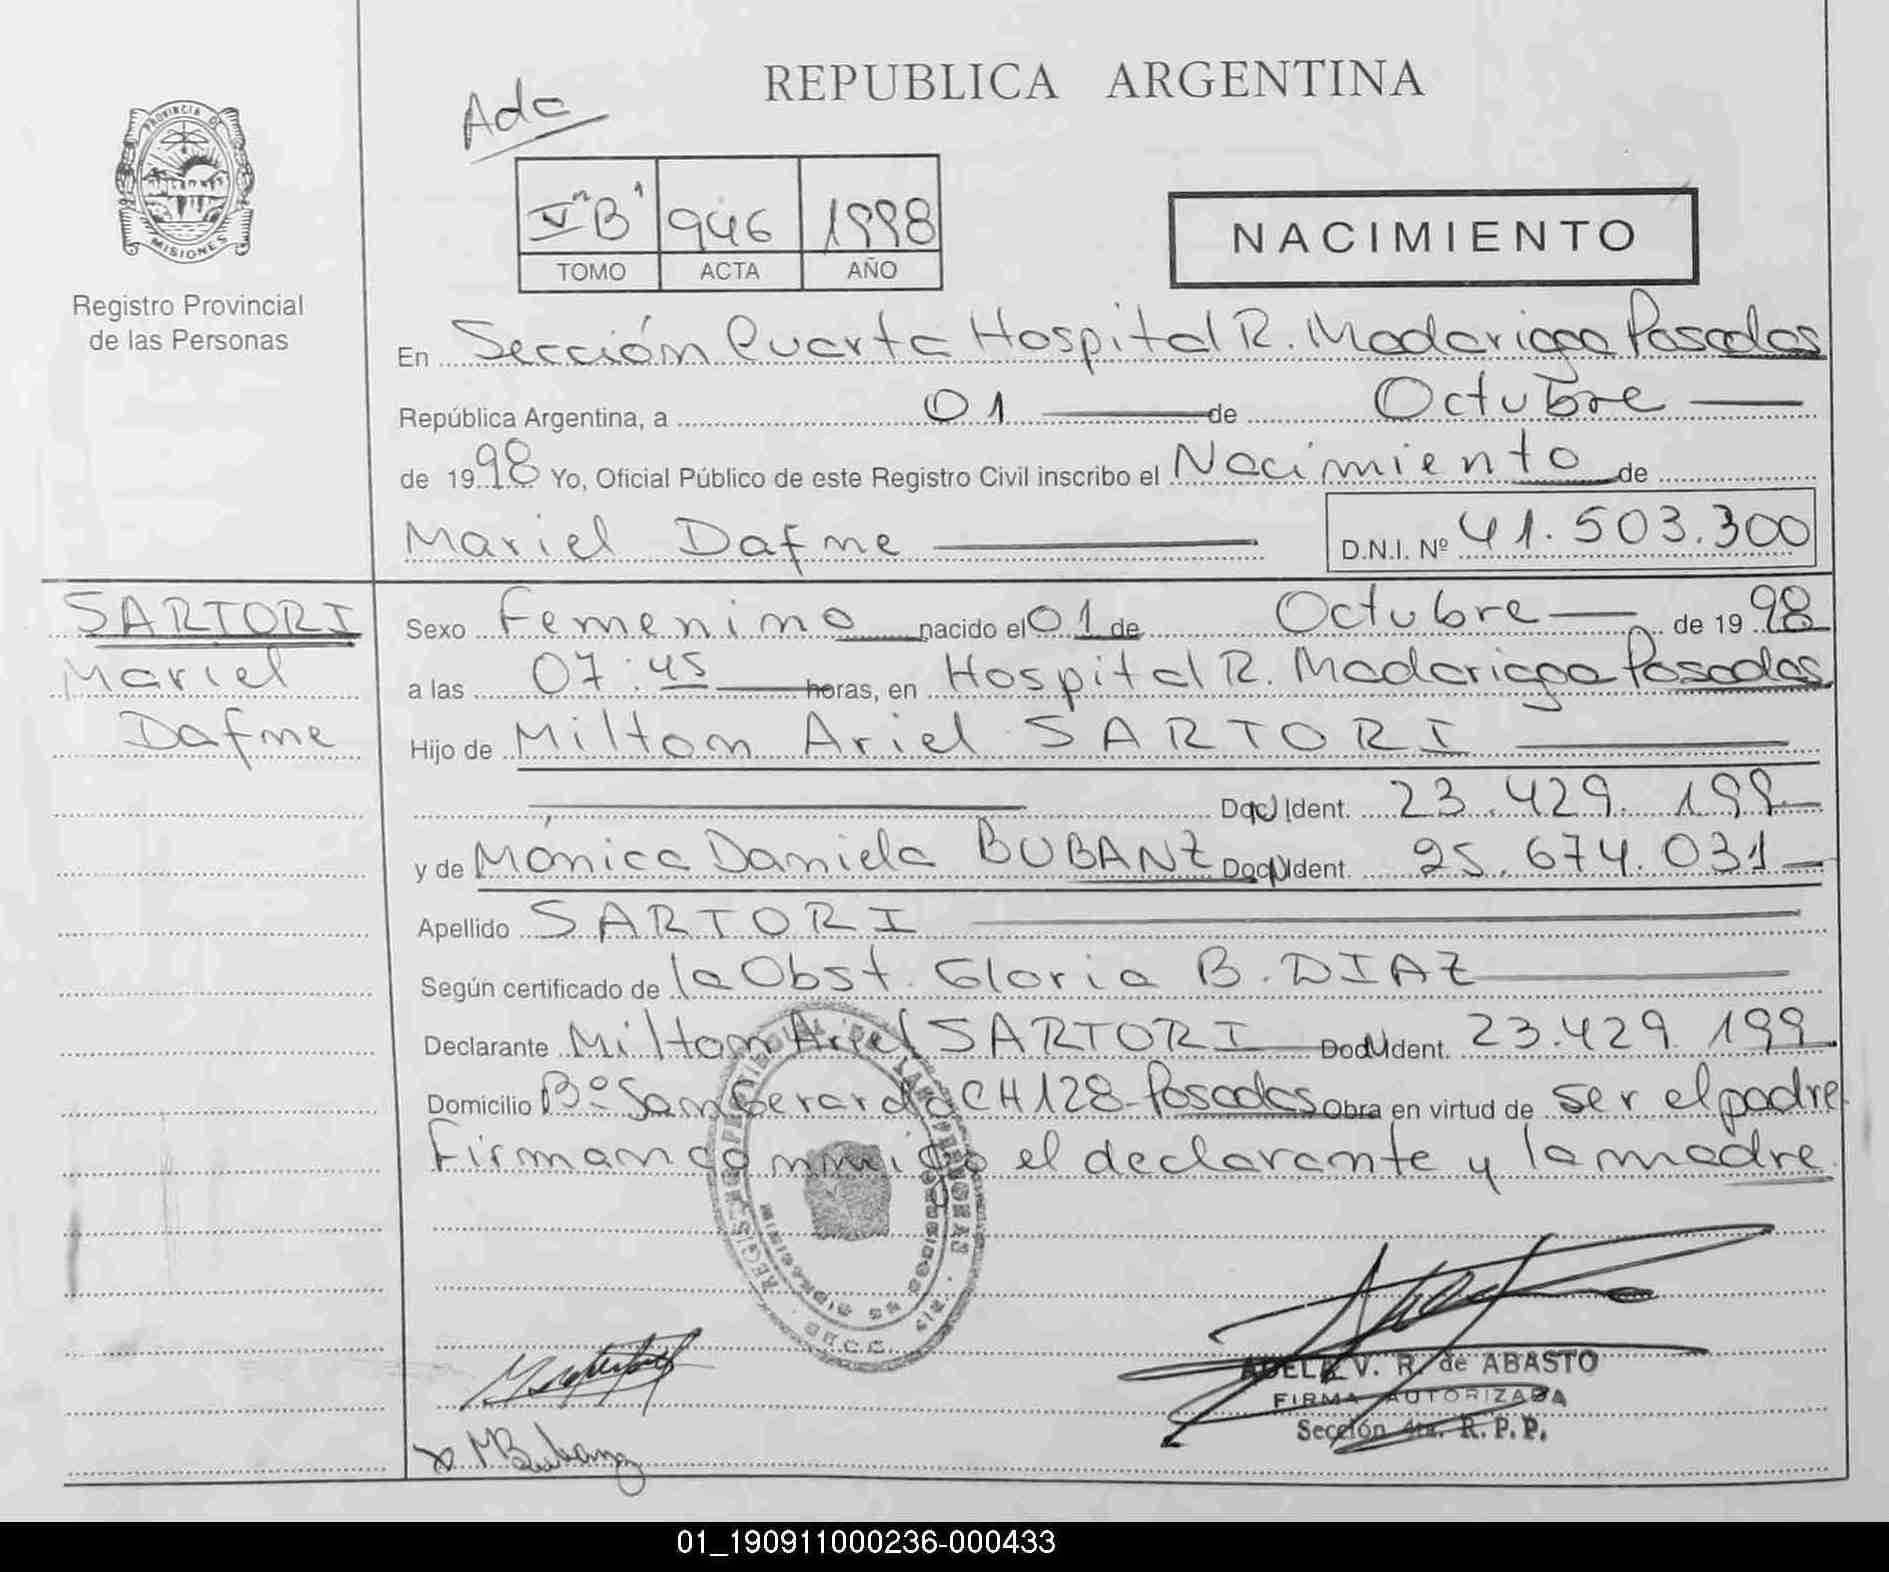 REPUBLICA ARGENTINA
Ada
PROVINCIA DE
MISIONES
Registro Provincial
de las Personas
V B 946 1998
TOMO ACTA AÑO
NACIMIENTO
En Sección Cuarta Hospital R. Madariaga Posadas
República Argentina, a 01 de Octubre
de 1998 Yo, Oficial Público de este Registro Civil inscribo el Nacimiento de
Mariel Dafne D.N.I. Nº 41.503.300
SARTORI
Mariel
Dafne
Sexo Femenino nacido el 01 de Octubre de 1998
a las 07:45 horas, en Hospital R. Madariaga Posadas
Hijo de Milton Ariel SARTORI
Doc. Ident. 23.429.199
y de Mónica Daniela BUBANZ Doc. Ident. 25.674.031
Apellido SARTORI
Según certificado de la Obst. Gloria B. DIAZ
Declarante Milton Ariel SARTORI Doc. Ident. 23.429.199
Domicilio Bº San Gerardo CH 128 Posadas Obra en virtud de ser el padre
Firman conmigo el declarante y la madre.
ADELA V. R. de ABASTO
FIRMA AUTORIZADA
Sección 4ta. R. P. P.
MBubanz
01_190911000236-000433